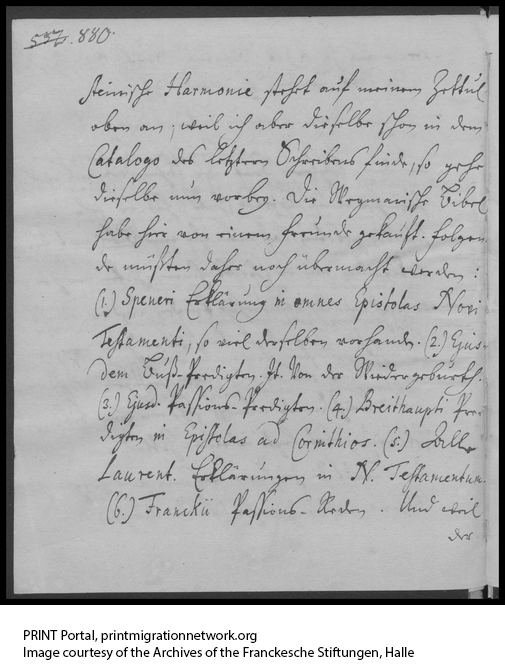 537. 880.
steinische Harmonie stehet auf meinem Zettul
oben an, weil ich aber dieselbe schon in dem
Catalogo des letztern Schreibens finde, so gehe
dieselbe nun vorbey. Die Wegmanische Bibel
habe hier von einem Freunde gekauft. Folgen-
de müßten daher noch übermacht werden:
(1.) Speneri Erklärung in omnes Epistolas Novi
Testamenti, so viel derselben vorhanden. (2.) Ejus-
dem Buß-Predigten. It. Von der Wiedergeburth.
(3.) Ejusd. Passions-Predigten. (4.) Breithaupti Pre-
digten in Epistolas ad Corinthios. (5.) Alle
Laurent. Erklärungen in N. Testamentum.
(6.) Franckii Passions-Reden. Und weil
der
PRINT Portal, printmigrationnetwork.org
Image courtesy of the Archives of the Franckesche Stiftungen, Halle